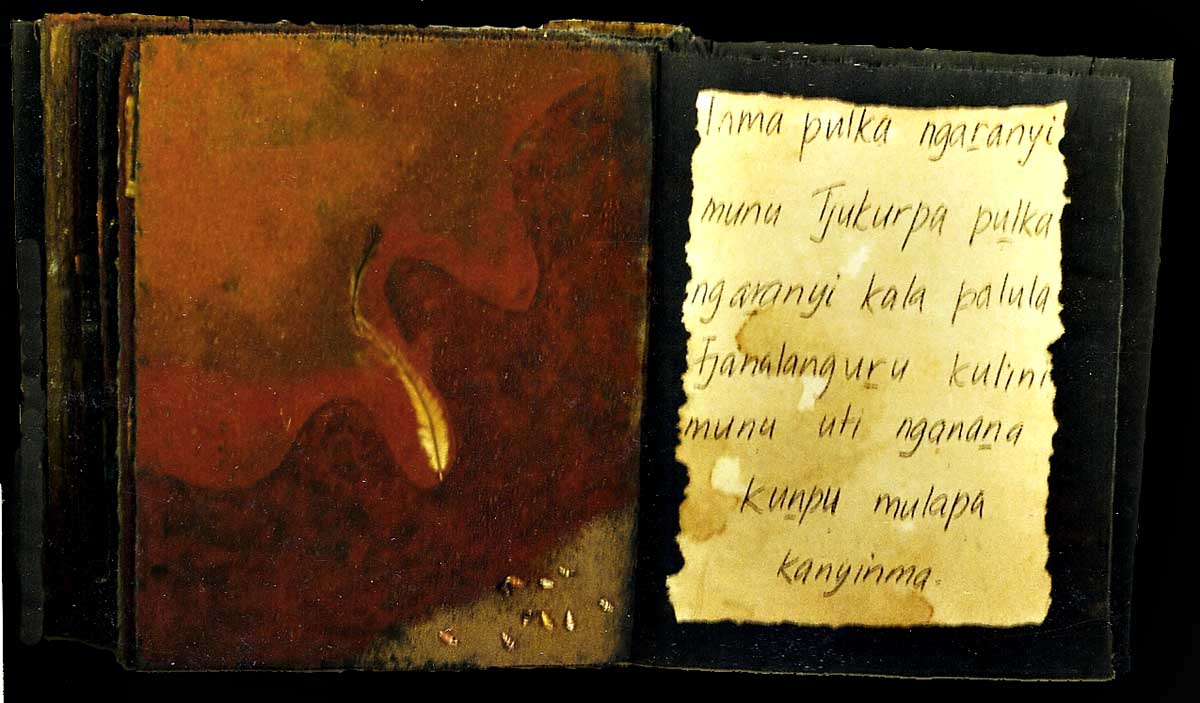 Inma pulka ngaṟanyi
munu Tjukurpa pu̱lka
ngaranyi kala palula
Tjanalanguṟu kulini
munu uti nga̱na̱ṉa
kuṉpu mulapa
kanyinma.